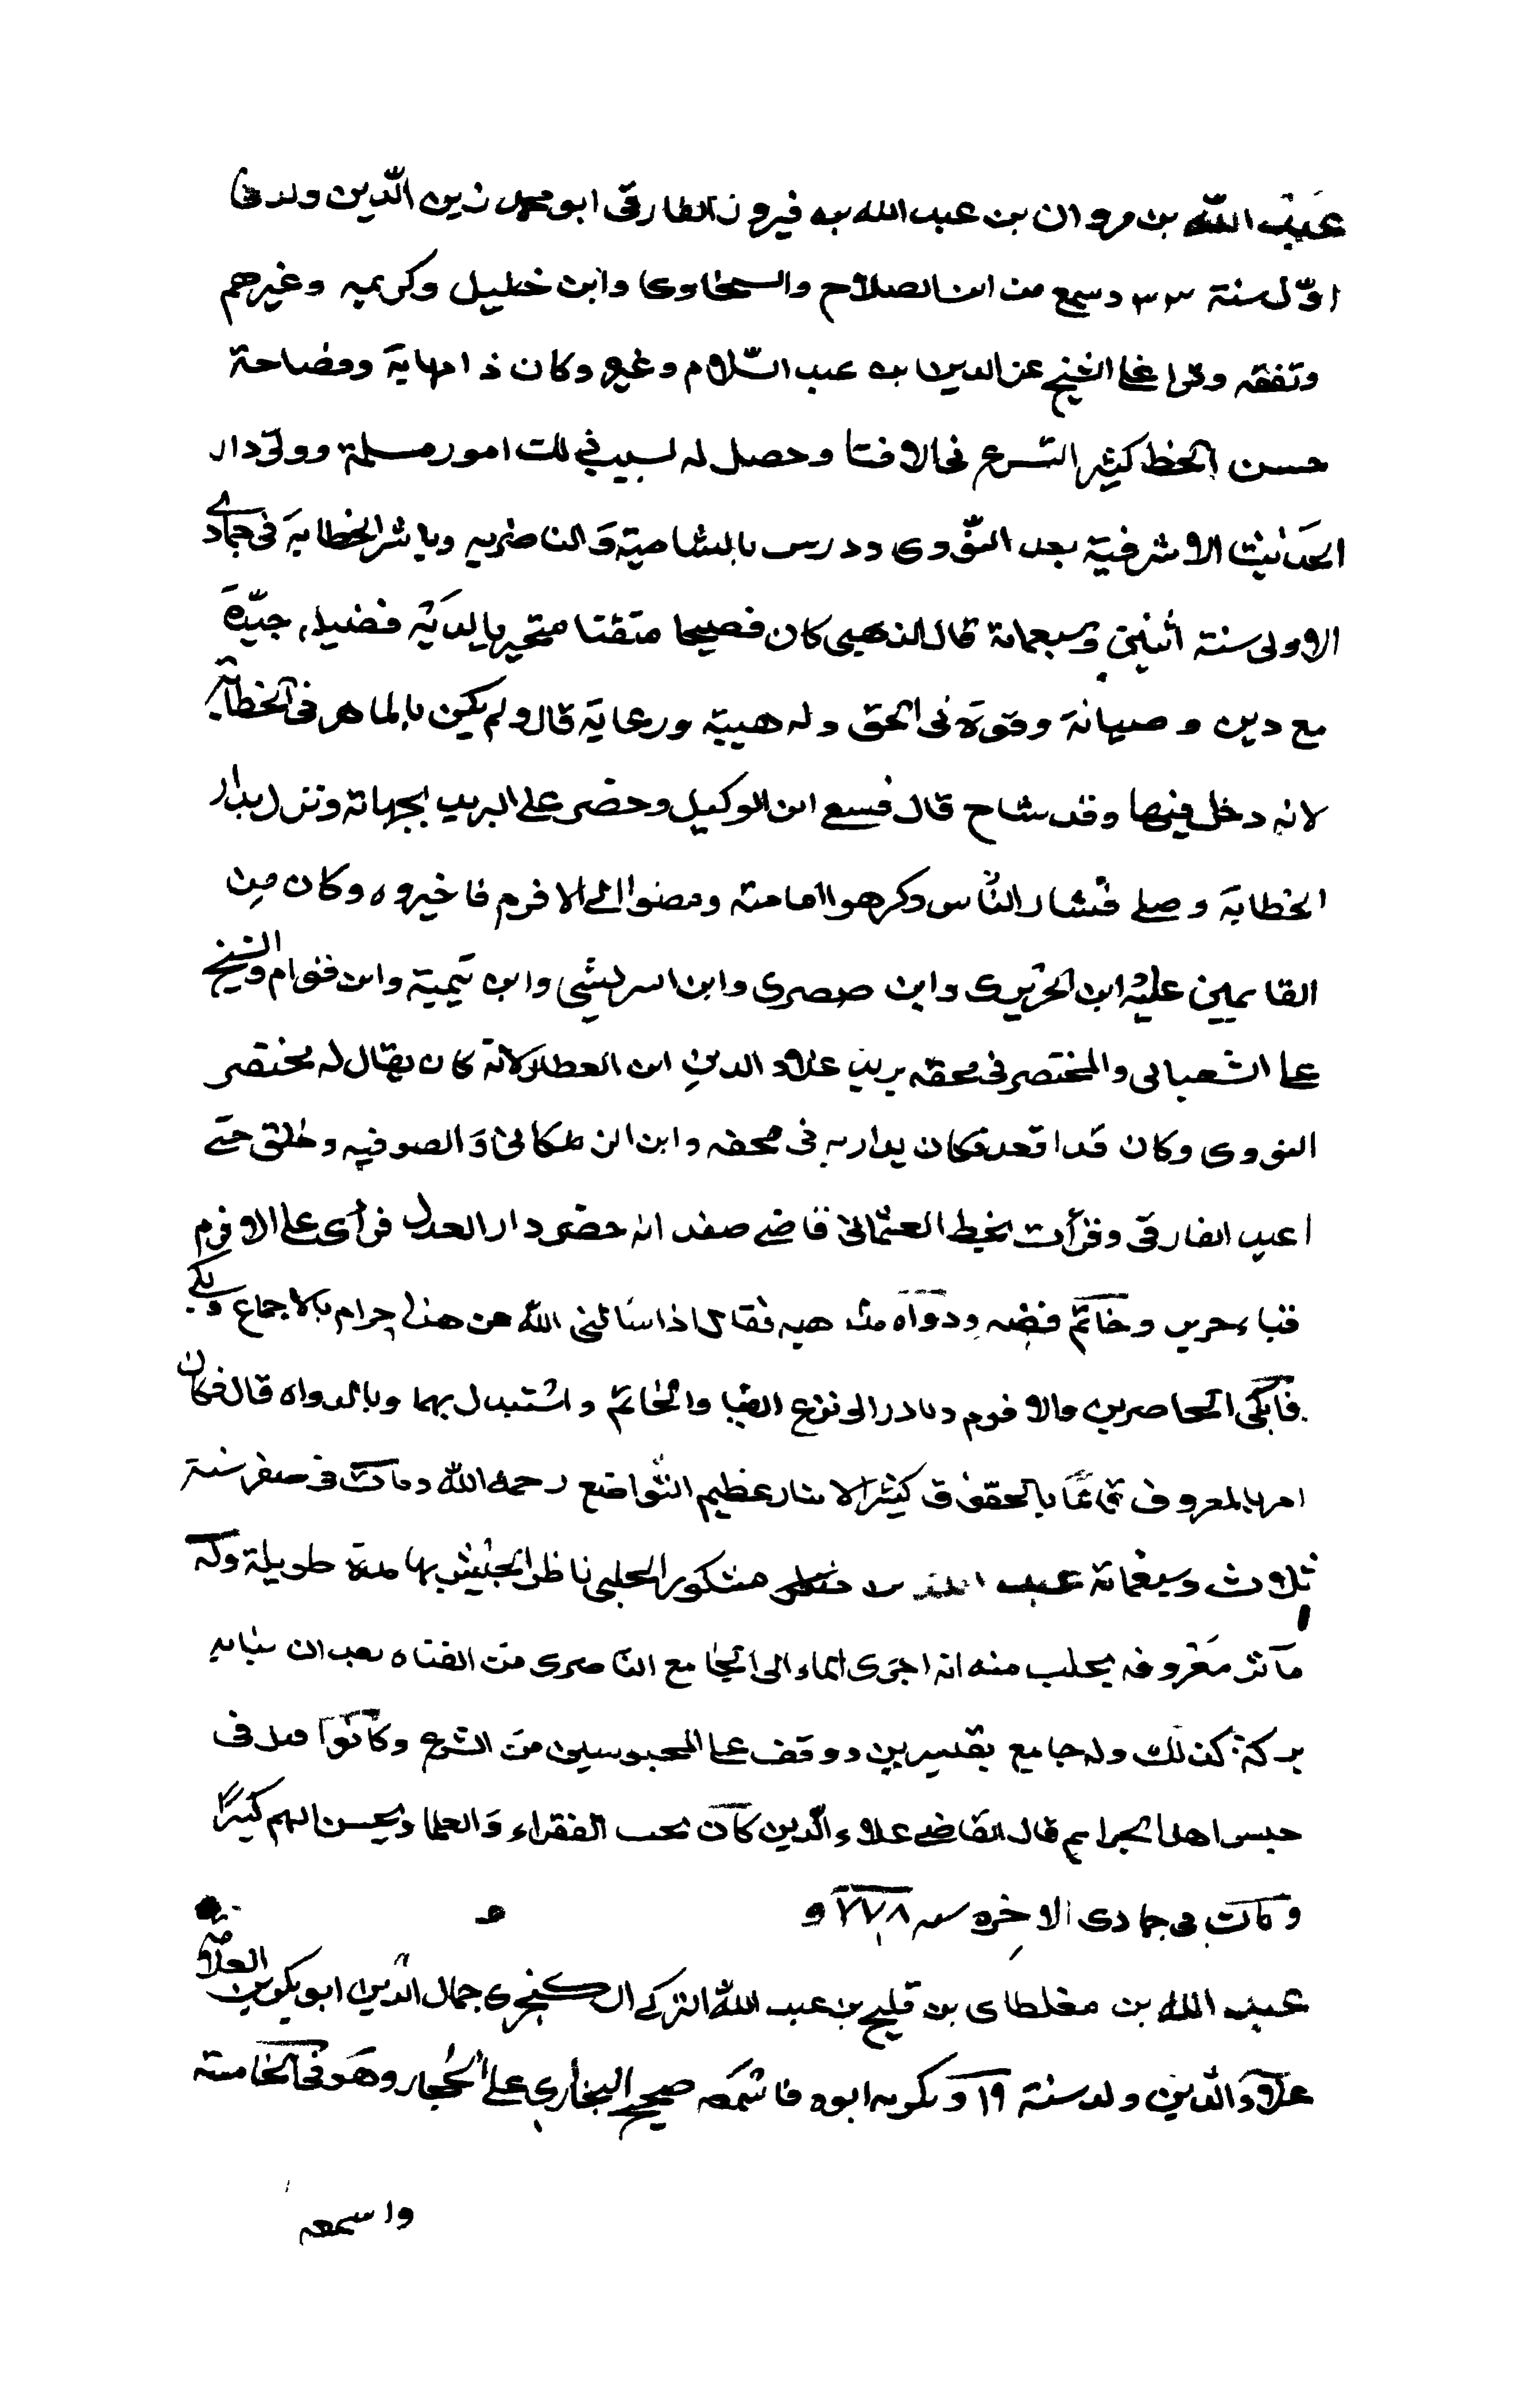 عبد الله بن مروان بن عبد الله بن فيروز الفارقي ابو محمد زين الدّين ولد في
اوّل سنة ٣٣ وسمع من ابن الصلاح والسخاوي وابن خليل وكريمه وغيرهم
وتفقه وقرا على الشيخ عز الدين بن عبد السّلام وغيره وكان ذا مهابة وفصاحة
حسن الخط كثير التسرع في الافتا وحصل له بسبب ذلك امور مسلمة وولي دار
الحديث الاشرفية بعد النّووي ودرس بالشامية والناصريه وباشر الخطابة في جمادي
الاولى سنة اثنين وسبعمائة قال الذهبي كان فصيحا متقنا متحريا لديه فضيلة جيّدة
مع دين وصيانة وقوة في الحق وله هيبة ورعاية قال ولم يكن بالماهر في الخطابة
لانه دخل فيها وقد شاخ قال فسع ابن الوكيل وحضر على البريد بجهاته ونزل بدار
الخطابة وصلى فثار النّاس وكرهوا امامته ومضوا الى الافرم فاخبروه وكان من
القايمين عليه ابن الحريري وابن صصرى وابن الشريشي وابن تيمية وابن قوام والشيخ
على الشعباني والمختصر في محفه يريد علاء الدين ابن العطار لانه كان يقال له مختصر
النووي وكان قد اقعد فكان يدار به في محفه وابن الزملكاني والصوفيه وخلق حتى
اعيد الفارقي وقرأت بخط العثماني قاضي صفد انه حضر دار العدل فرأى على الافرم
قباء حرير وخاتم فضه ودواه مذهبه فقال اذا سألني الله عن هذا حرام بالاجماع وبكى
فابكى الحاضرين والافرم وبادر الى نزع القبا والخاتم واستبدل بهما وبالدواه قال فكان
امر بالمعروف قائمًا بالحقوق كثير الايثار عظيم التّواضع رحمه الله ومات في صفر سنة
ثلاث وسبعمائة عبد الله بن مشكور الحلبي ناظر الجيش بها مدة طويلة وله
مآثر معروفه بحلب منه انه اجرى الماء الى الجامع الناصري من القناه بعد ان بنا به
بركة كذلك وله جامع بقنسرين ووقف على المحبوسين من الشرع وكانوا قبل في
حبس اهل الجرايم قال القاضي علاء الدّين كان يحب الفقراء والعلما ويحسن اليهم كثيرًا
ومات في جمادى الاخره سنه ٧٧٨ و ه
عبد الله بن مغلطاي بن قليج بن عبد الله التركي البكجري جمال الدّين ابو بكر بن العلّامه
علاء الدّين ولد سنة ١٩ وبكر به ابوه فاسمعه صحيح البخاري على الحجار وهو في الخامسة
واسمعه